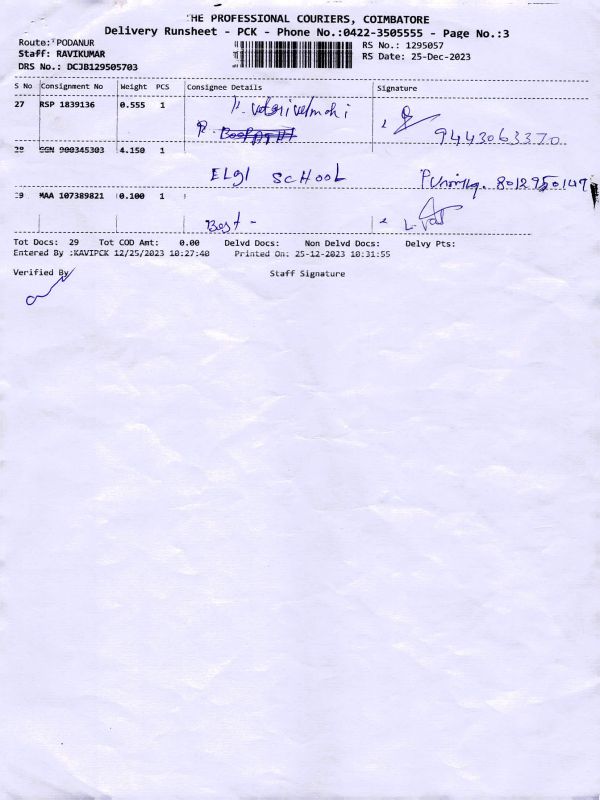 THE PROFESSIONAL COURIERS, COIMBATORE
Delivery Runsheet - PCK - Phone No.:0422-3505555 - Page No.:3
Route: PODANUR
RS No.: 1295057
Staff: RAVIKUMAR
RS Date: 25-Dec-2023
DRS No.: DCJB129505703
S No Consignment No Weight PCS Consignee Details Signature
27 RSP 1839136 0.555 1
9443063370
28 GGN 900345303 4.150 1
ELGI SCHOOL
29 MAA 107389821 0.100 1
Best -
Tot Docs: 29 Tot COD Amt: 0.00 Delvd Docs: Non Delvd Docs: Delvy Pts:
Entered By :KAVIPCK 12/25/2023 10:27:40 Printed On: 25-12-2023 10:31:55
Verified By Staff Signature